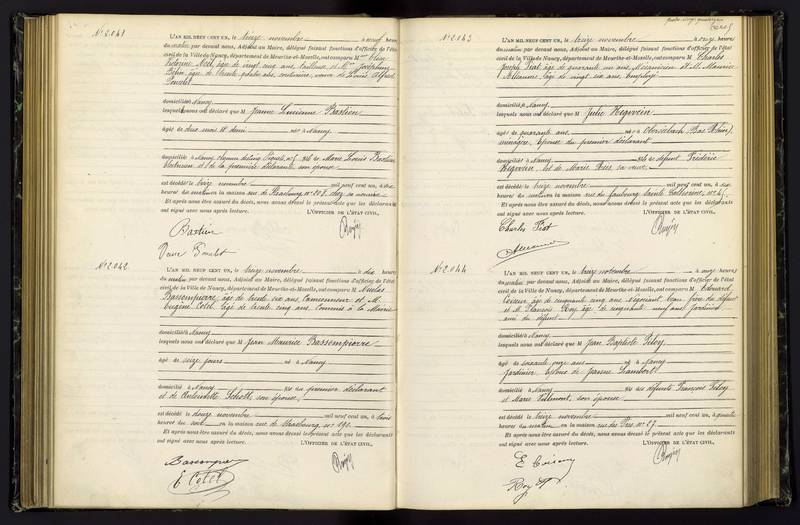 N° 2041
L'AN MIL NEUF CENT UN, le treize novembre à neuf heures
du matin par devant nous, Adjoint au Maire, délégué faisant fonctions d'officier de l'état
civil de la Ville de Nancy, département de Meurthe-et-Moselle, ont comparu M
Victorine Noël, âgée de vingt cinq ans, et Mme Joséphine
âgée de trente quatre ans, couturière, veuve de Louis Alfred
domiciliés à Nancy
lesquels nous ont déclaré que M Jeanne Lucienne Bastien
âgée de deux mois et demi née à Nancy
domiciliée à Nancy fille de Marie Louis Bastien
et de la première déclarante, son épouse
est décédée le treize novembre mil neuf cent un, à six
heures du matin en la maison rue de Strasbourg n° 207, chez sa nourrice
Et après nous être assuré du décès, nous avons dressé le présent acte que les déclarants
ont signé avec nous après lecture. L'OFFICIER DE L'ÉTAT CIVIL,
Bastien
Veuve
N° 2042
L'AN MIL NEUF CENT UN, le treize novembre à dix heures
du matin par devant nous, Adjoint au Maire, délégué faisant fonctions d'officier de l'état
civil de la Ville de Nancy, département de Meurthe-et-Moselle, ont comparu M Nicolas
Bassompierre, âgé de trente six ans, Camionneur et M.
Eugène Colet, âgé de trente cinq ans, Commis à la Mairie
domiciliés à Nancy
lesquels nous ont déclaré que M Jean Maurice Bassompierre
âgé de seize jours né à Nancy
domicilié à Nancy fils du premier déclarant
et de Antoinette Schott, son épouse
est décédé le douze novembre mil neuf cent un, à trois
heures du soir en la maison rue de Strasbourg, n° 190
Et après nous être assuré du décès, nous avons dressé le présent acte que les déclarants
ont signé avec nous après lecture. L'OFFICIER DE L'ÉTAT CIVIL,
Bassompierre
E. Colet
N° 2043
L'AN MIL NEUF CENT UN, le treize novembre à onze heures
du matin par devant nous, Adjoint au Maire, délégué faisant fonctions d'officier de l'état
civil de la Ville de Nancy, département de Meurthe-et-Moselle, ont comparu M Charles
Joseph âgé de quarante un ans, Mécanicien et M. Maurice
âgé de vingt six ans, employé
domiciliés à Nancy
lesquels nous ont déclaré que M Julie Hegwein
âgée de quarante ans née à (Bas Rhin),
ménagère, épouse du premier déclarant
domiciliée à Nancy fille de défunt Frédéric
Hegwein et de Marie sa veuve
est décédée le treize novembre mil neuf cent un, à six
heures du matin en la maison rue du faubourg Sainte Catherine, n°
Et après nous être assuré du décès, nous avons dressé le présent acte que les déclarants
ont signé avec nous après lecture. L'OFFICIER DE L'ÉTAT CIVIL,
Charles
N° 2044
L'AN MIL NEUF CENT UN, le treize novembre à onze heures
du matin par devant nous, Adjoint au Maire, délégué faisant fonctions d'officier de l'état
civil de la Ville de Nancy, département de Meurthe-et-Moselle, ont comparu M Edouard
âgé de cinquante cinq ans, négociant, beau frère du défunt
et M. François Roy, âgé de cinquante neuf ans, jardinier
ami du défunt
domiciliés à Nancy
lesquels nous ont déclaré que M Jean Baptiste
âgé de soixante onze ans né à Nancy
jardinier, époux de Jeanne Lambert
domicilié à Nancy fils de défunts François
et Marie son épouse
est décédé le treize novembre mil neuf cent un, à quatre
heures du matin en la maison rue des Prés n° 67
Et après nous être assuré du décès, nous avons dressé le présent acte que les déclarants
ont signé avec nous après lecture. L'OFFICIER DE L'ÉTAT CIVIL,
Roy